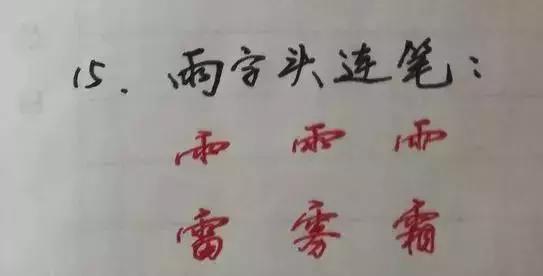 15. 雨字头连笔:
雨 雨 雨
雷 雾 霜